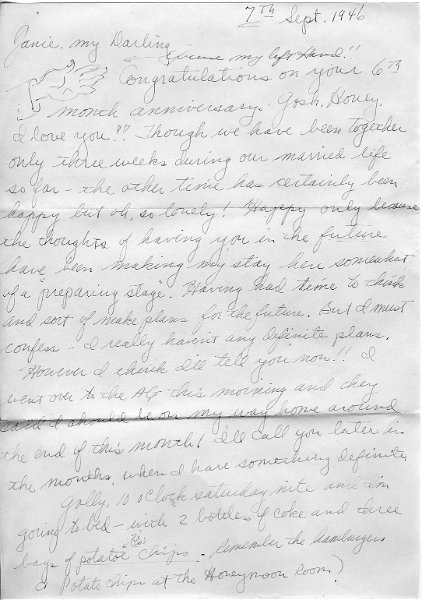 7TH Sept. 1946
Janie, my Darling,
Excuse my left hand!!
Congratulations on your 6TH
month anniversary. Gosh, Honey
I love you!! Though we have been together
only three weeks during our married life
so far - the other time has certainly been
happy but oh, so lonely! Happy only because
the thoughts of having you in the future
have been making my stay here somewhat
of a "preparing stage". Having had time to think
and sort of make plans for the future. But I must
confess - I really haven't any definite plans.
However I think I'll tell you now!! I
went over to the AG this morning and they
said I should be on my way home around
the end of this month! I'll call you later in
the months, when I have something definite
Golly, 10 oClock saturday nite and I'm
going to bed - with 2 bottles of coke and three
bags of potatoe chips. (Remember the hamburgers
& Potato chips at the Honeymoon Room?)